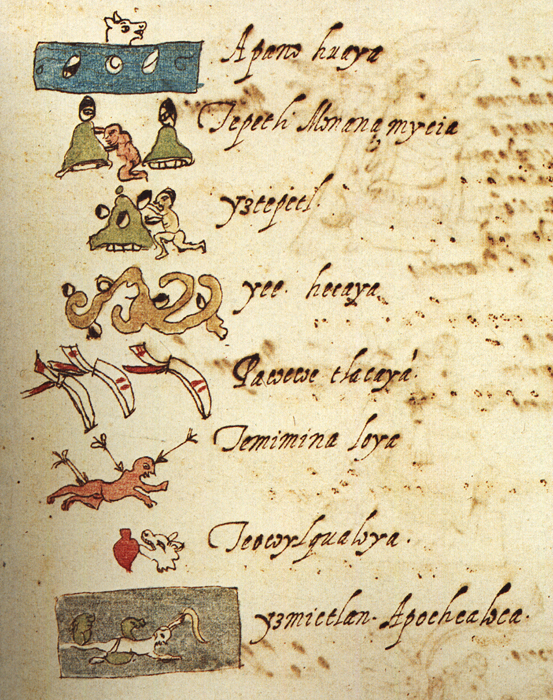 Apano huaya
Tepetli Monanamycia
yztepetl.
yee. hecaya
Pacoecoe tlacaya.
Temimina loya
Teocoylqualoya.
yzmictlan. Apochcaloca.